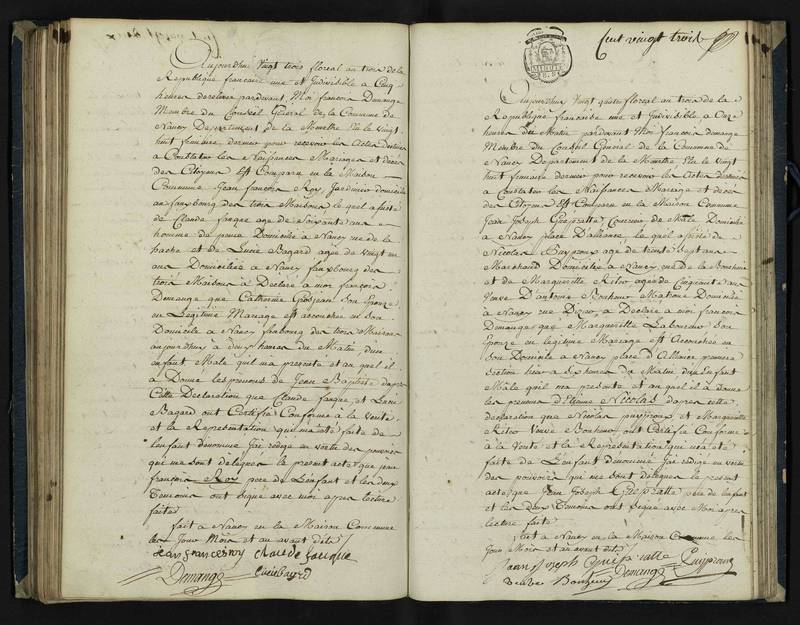 Aujourd'huy vingt trois floreal an trois de la
Republique francaise une et Indivisible a Cinq
heures de relevee pardevant Moi françois Demange
Membre du Conseil General de la Commune de
Nancy Departement de la Meurthe Elu le vingt
huit frimaire dernier pour recevoir les Actes destinés
a Constater les Naissances Mariages et décès
des Citoyens Est Comparu en la Maison
Commune Jean françois Roy Jardinier domicilié
au fauxbourg des trois Maisons le quel assisté
de Claude fauque agé de Soixante ans
homme de peine Domicilié a Nancy rue de la
hache et de Lucie Bagard agée de vingt un
ans Domiciliée a Nancy fauxbourg des
trois Maisons a Déclaré a moi françois
Demange que Catherine Grosjean son Epouse
en Légitime Mariage est accouchée en son
Domicile a Nancy faubourg des trois Maisons
aujourd'huy a deux heures du Matin d'un
enfant Male qu'il m'a presenté et au quel il
a Donné les prenoms de Jean Baptiste d'après
Cette Déclaration que Claude fauque et Lucie
Bagard ont Certifié Conforme à la Verité
et la Representation qui m'a été faite de
l'enfant dénommé J'ai rédigé en vertu des pouvoirs
qui me sont délégués le present acte que Jean
françois Roy pere de l'enfant et les deux
Temoins ont signé avec moi apres lecture
faite
fait a Nancy en la Maison Commune
les Jour Mois et an avant dits
Jean francois roy Claude fauque
Demange Lucie Bagard
Cent vingt trois
Aujourd'huy vingt quatre floreal an trois de la
Republique francaise une et Indivisible a Onze
heures du Matin pardevant Moi françois demange
Membre du Conseil General de la Commune de
Nancy Departement de la Meurthe Elu le vingt
huit frimaire dernier pour recevoir les Actes destinés
a Constater les Naissances Mariages et décès
des Citoyens Est Comparu en la Maison Commune
Jean Joseph Domicilié
a Nancy place D'alliance le quel assisté de
Nicolas agé de trente Sept ans
Marchand Domicilié a Nancy rue de la Boucherie
et de Marguerite agée de Cinquante ans
Veuve D'antoine Bonheur Domiciliée
a Nancy rue a Declaré a moi françois
Demange que Marguerite son
Epouse en legitime Mariage est Accouchée en
son Domicile a Nancy place d'Alliance premiere
Section hier a Six heures du Matin d'un Enfant
Male qu'il m'a presenté et au quel il a donné
les prenoms d'Etienne Nicolas d'apres cette
declaration que Nicolas et Marguerite
Veuve Bonheur ont Certifié Conforme
à la Verité et la Representation qui m'a été
faite de L'enfant dénommé J'ai rédigé en vertu
des pouvoirs qui me sont délégués le present
acte que Jean Joseph pere de l'enfant
et les deux Temoins ont signé avec Moi apres
lecture faite
fait a Nancy en la Maison Commune les
Jour Mois et an avant dits
Jean Joseph
veuve Bonheur Demange